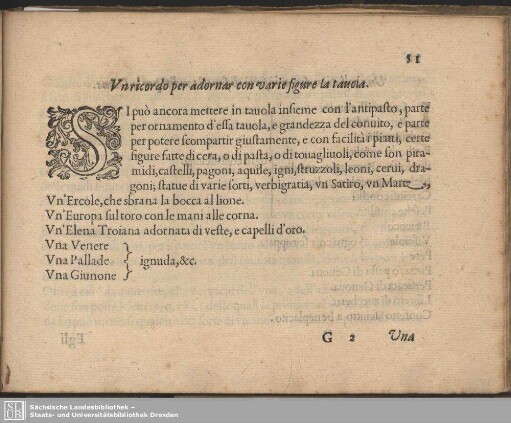 51
Vn ricordo per adornar con varie figure la tauola.
SI può ancora mettere in tauola insieme con l'antipasto, parte
per ornamento d'essa tauola, e grandezza del conuito, e parte
per potere scompartir giustamente, e con facilità i piatti, certe
figure fatte di cera, o di pasta, o di touagliuoli, come son pira-
midi, castelli, pagoni, aquile, igni, struzzoli, leoni, cerui, dra-
goni; statue di varie sorti, verbigratia, vn Satiro, vn Marte,
Vn'Ercole, che sbrana la bocca al lione.
Vn'Europa sul toro con le mani alle corna.
Vn'Elena Troiana adornata di veste, e capelli d'oro.
Vna Venere
Vna Pallade } ignuda, &c.
Vna Giunone
G 2 Vna
SLUB
Sächsische Landesbibliothek –
Staats- und Universitätsbibliothek Dresden